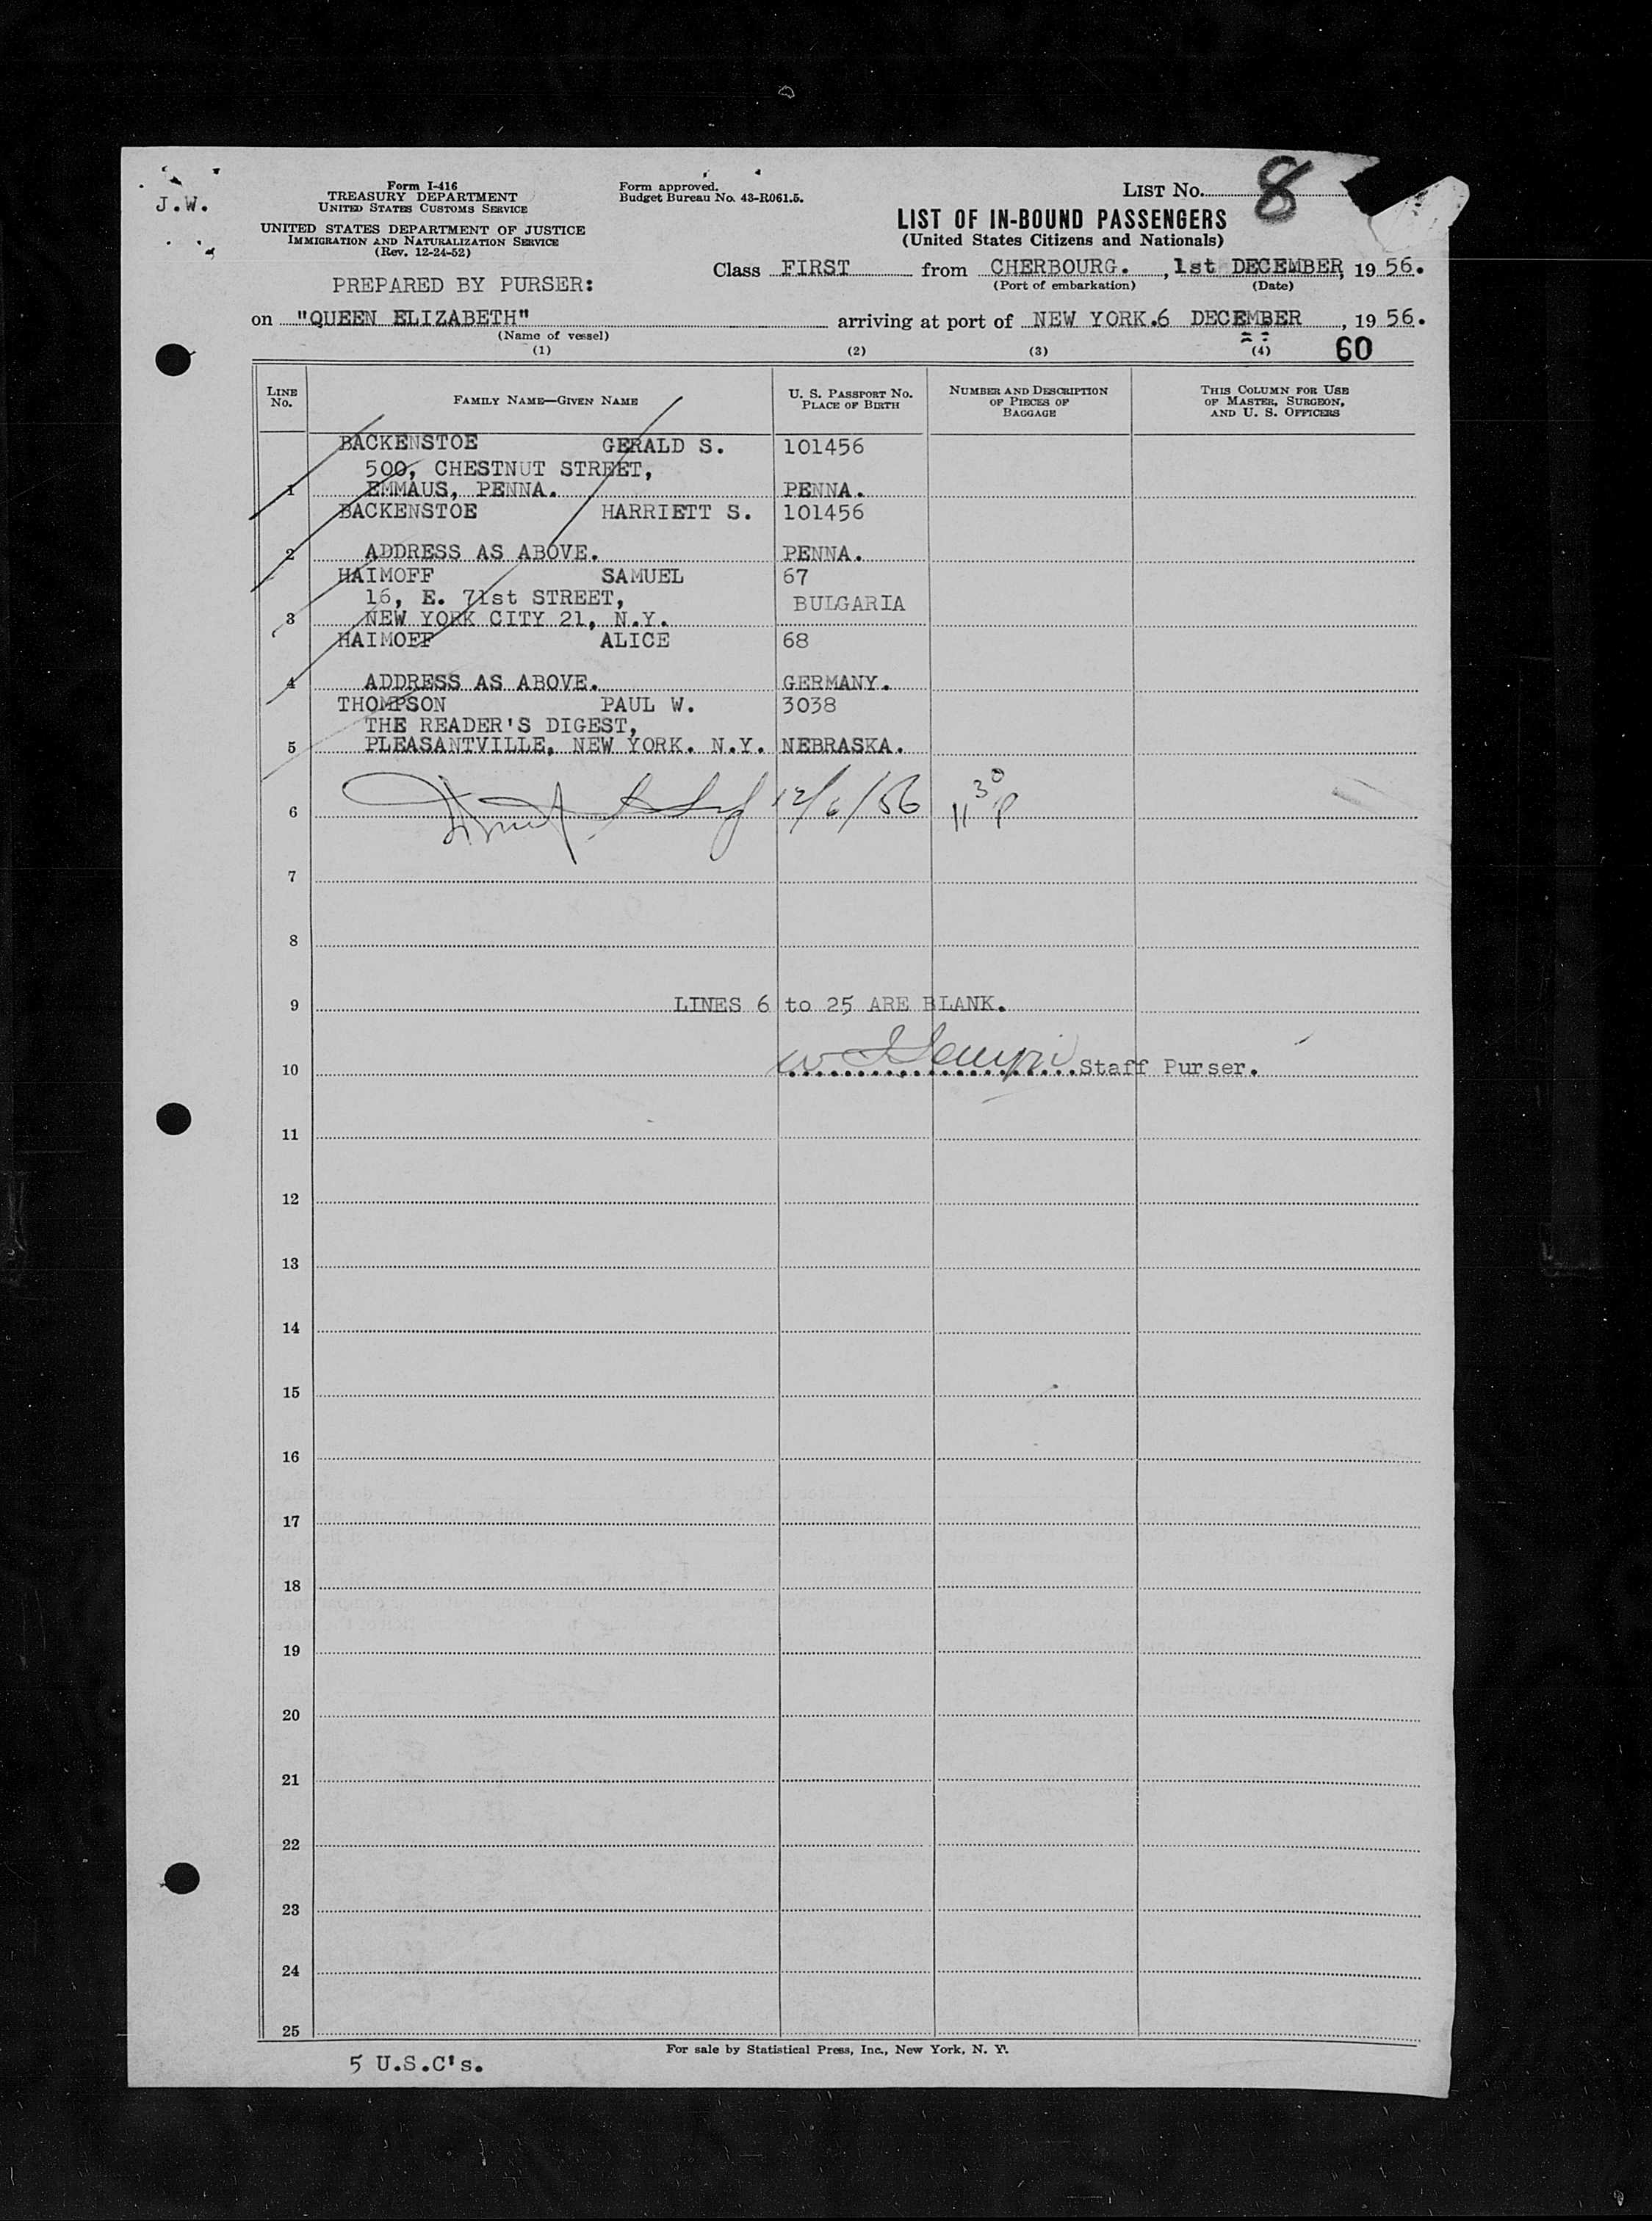 J.W.
Form I-416
TREASURY DEPARTMENT
UNITED STATES CUSTOMS SERVICE
UNITED STATES DEPARTMENT OF JUSTICE
IMMIGRATION AND NATURALIZATION SERVICE
(Rev. 12-24-52)
Form approved.
Budget Bureau No. 43-R061.5.
LIST NO. 8
LIST OF IN-BOUND PASSENGERS
(United States Citizens and Nationals)
PREPARED BY PURSER:
Class FIRST from CHERBOURG. , 1st DECEMBER, 19 56.
(Port of embarkation) (Date)
on "QUEEN ELIZABETH" arriving at port of NEW YORK. 6 DECEMBER , 19 56.
(Name of vessel)
(1) (2) (3) (4) 60
LINE No. FAMILY NAME—GIVEN NAME U. S. PASSPORT NO. PLACE OF BIRTH NUMBER AND DESCRIPTION OF PIECES OF BAGGAGE THIS COLUMN FOR USE OF MASTER, SURGEON, AND U. S. OFFICERS
BACKENSTOE GERALD S. 101456
500, CHESTNUT STREET,
1 EMMAUS, PENNA. PENNA.
BACKENSTOE HARRIETT S. 101456
2 ADDRESS AS ABOVE. PENNA.
HAIMOFF SAMUEL 67
16, E. 71st STREET, BULGARIA
3 NEW YORK CITY 21, N.Y.
HAIMOFF ALICE 68
4 ADDRESS AS ABOVE. GERMANY.
THOMPSON PAUL W. 3038
THE READER'S DIGEST,
5 PLEASANTVILLE, NEW YORK. N.Y. NEBRASKA.
6 12/6/56 11 30 P
7
8
9 LINES 6 to 25 ARE BLANK.
10 Staff Purser.
11
12
13
14
15
16
17
18
19
20
21
22
23
24
25
For sale by Statistical Press, Inc., New York, N. Y.
5 U.S.C's.